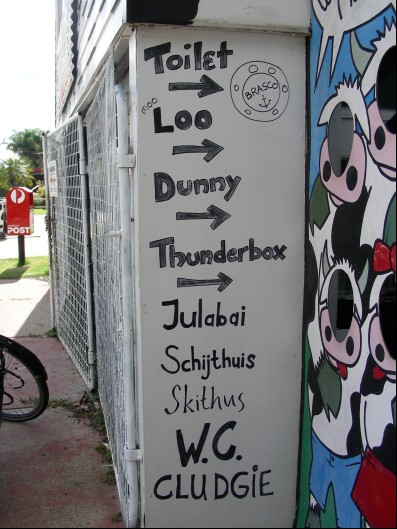 Toilet
BRASCO
moo
Loo
Dunny
Thunderbox
Julabai
Schijthuis
Skithus
W.C.
CLUDGIE
POST